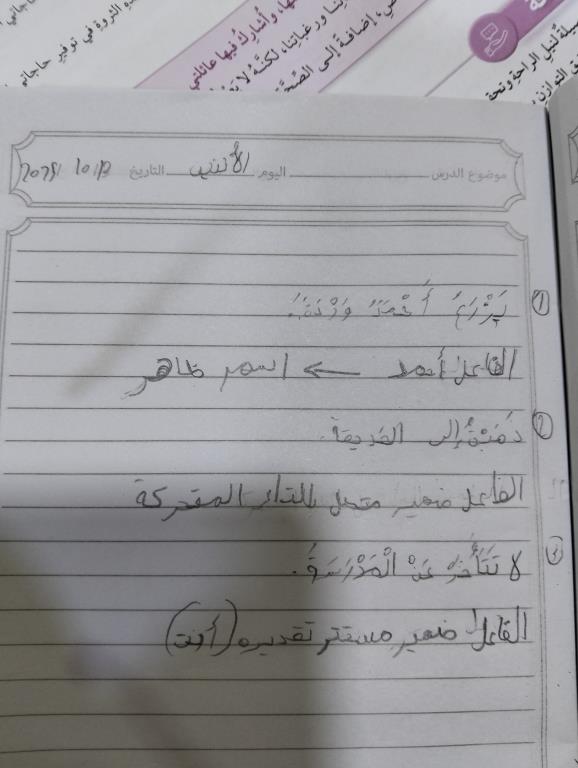 حاجاتي
ـو الثروة في توفير حاجاتي
ـها، وأشارك فيها عائلتي
ـتنا ورغباتنا، لكنّه لا
ـي، إضافة إلى الصّحّة
ـيلة لنيل الراحة وتحقـ
التوازن
موضوع الدرس اليوم الأثنين التاريخ 10/13/2025
① يَزْرَعُ أَحْمَدُ وَرْدَةً.
الفاعل أحمد ← اسم ظاهر
② ذهبتُ إلى الحديقة.
الفاعل ضمير متصل بالتاء المتحركة
③ لا تَتَأَخَّرْ عَنْ الْمَدْرَسَةِ.
الفاعل ضمير مستتر تقديره (أنت)